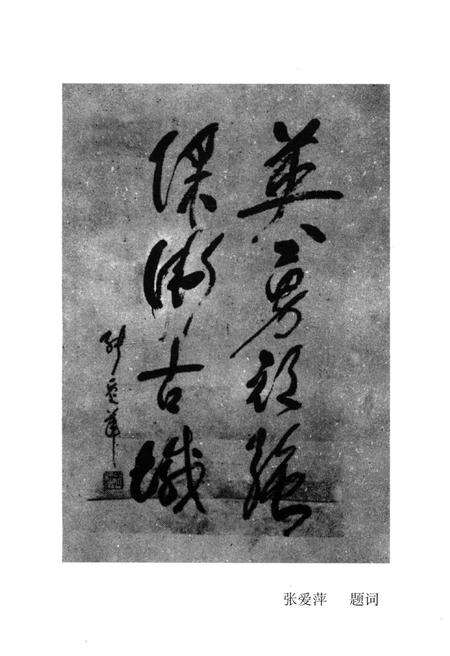 英勇顽强
保卫古城
张爱萍
张爱萍 题词